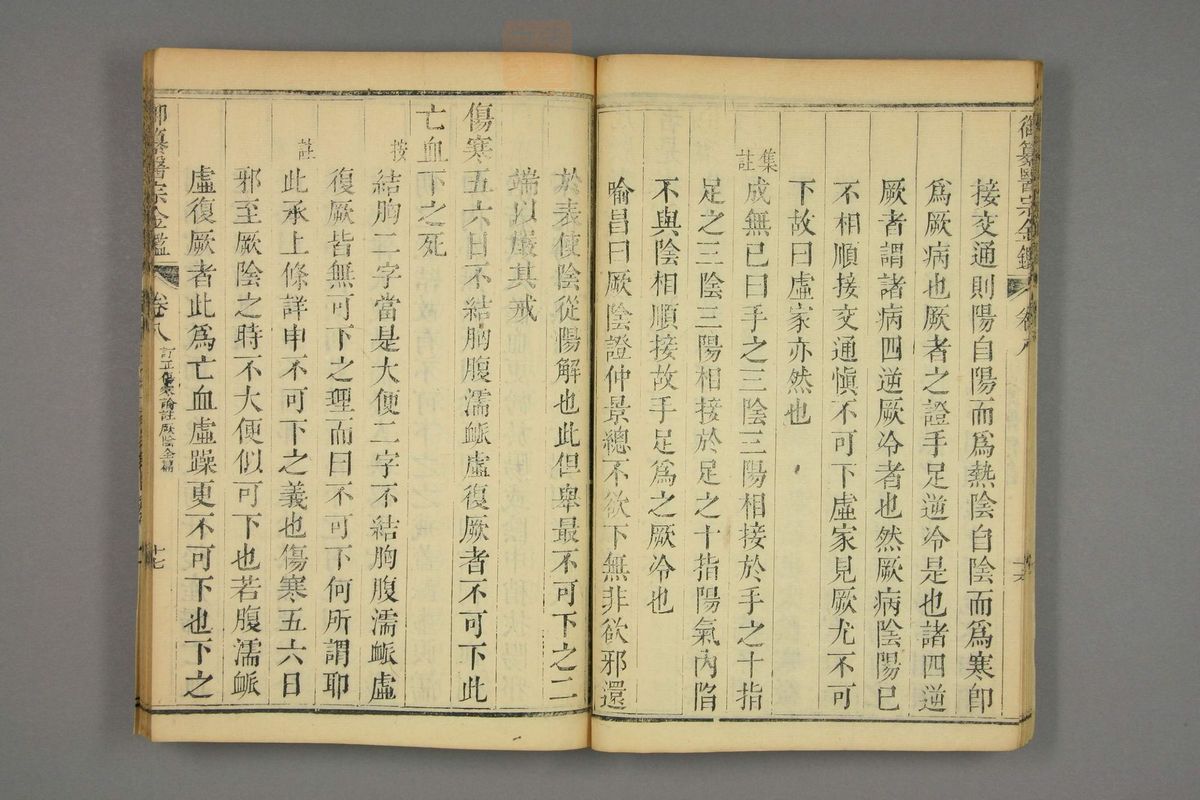 接交通則陽自陽而爲熱陰自陰而爲寒卽
爲厥病也厥者之證手足逆冷是也諸四逆
厥者謂諸病四逆厥冷者也然厥病陰陽已
不相順接交通愼不可下虛家見厥尤不可
下故曰虛家亦然也
集註
成無已曰手之三陰三陽相接於手之十指
足之三陰三陽相接於足之十指陽氣內陷
不與陰相順接故手足爲之厥冷也
喻昌曰厥陰證仲景總不欲下無非欲邪還
於表使陰從陽解也此但舉最不可下之二
端以嚴其戒
傷寒五六日不結胸腹濡脈虛復厥者不可下此
亡血下之死
按
結胸二字當是大便二字不結胸腹濡脈虛
復厥皆無可下之理而曰不可下何所謂耶
註
此承上條詳申不可下之義也傷寒五六日
邪至厥陰之時不大便似可下也若腹濡脈
虛復厥者此爲亡血虛躁更不可下也下之
御纂醫宗金鑑
卷八
訂正傷寒論註厥陰全篇
十七